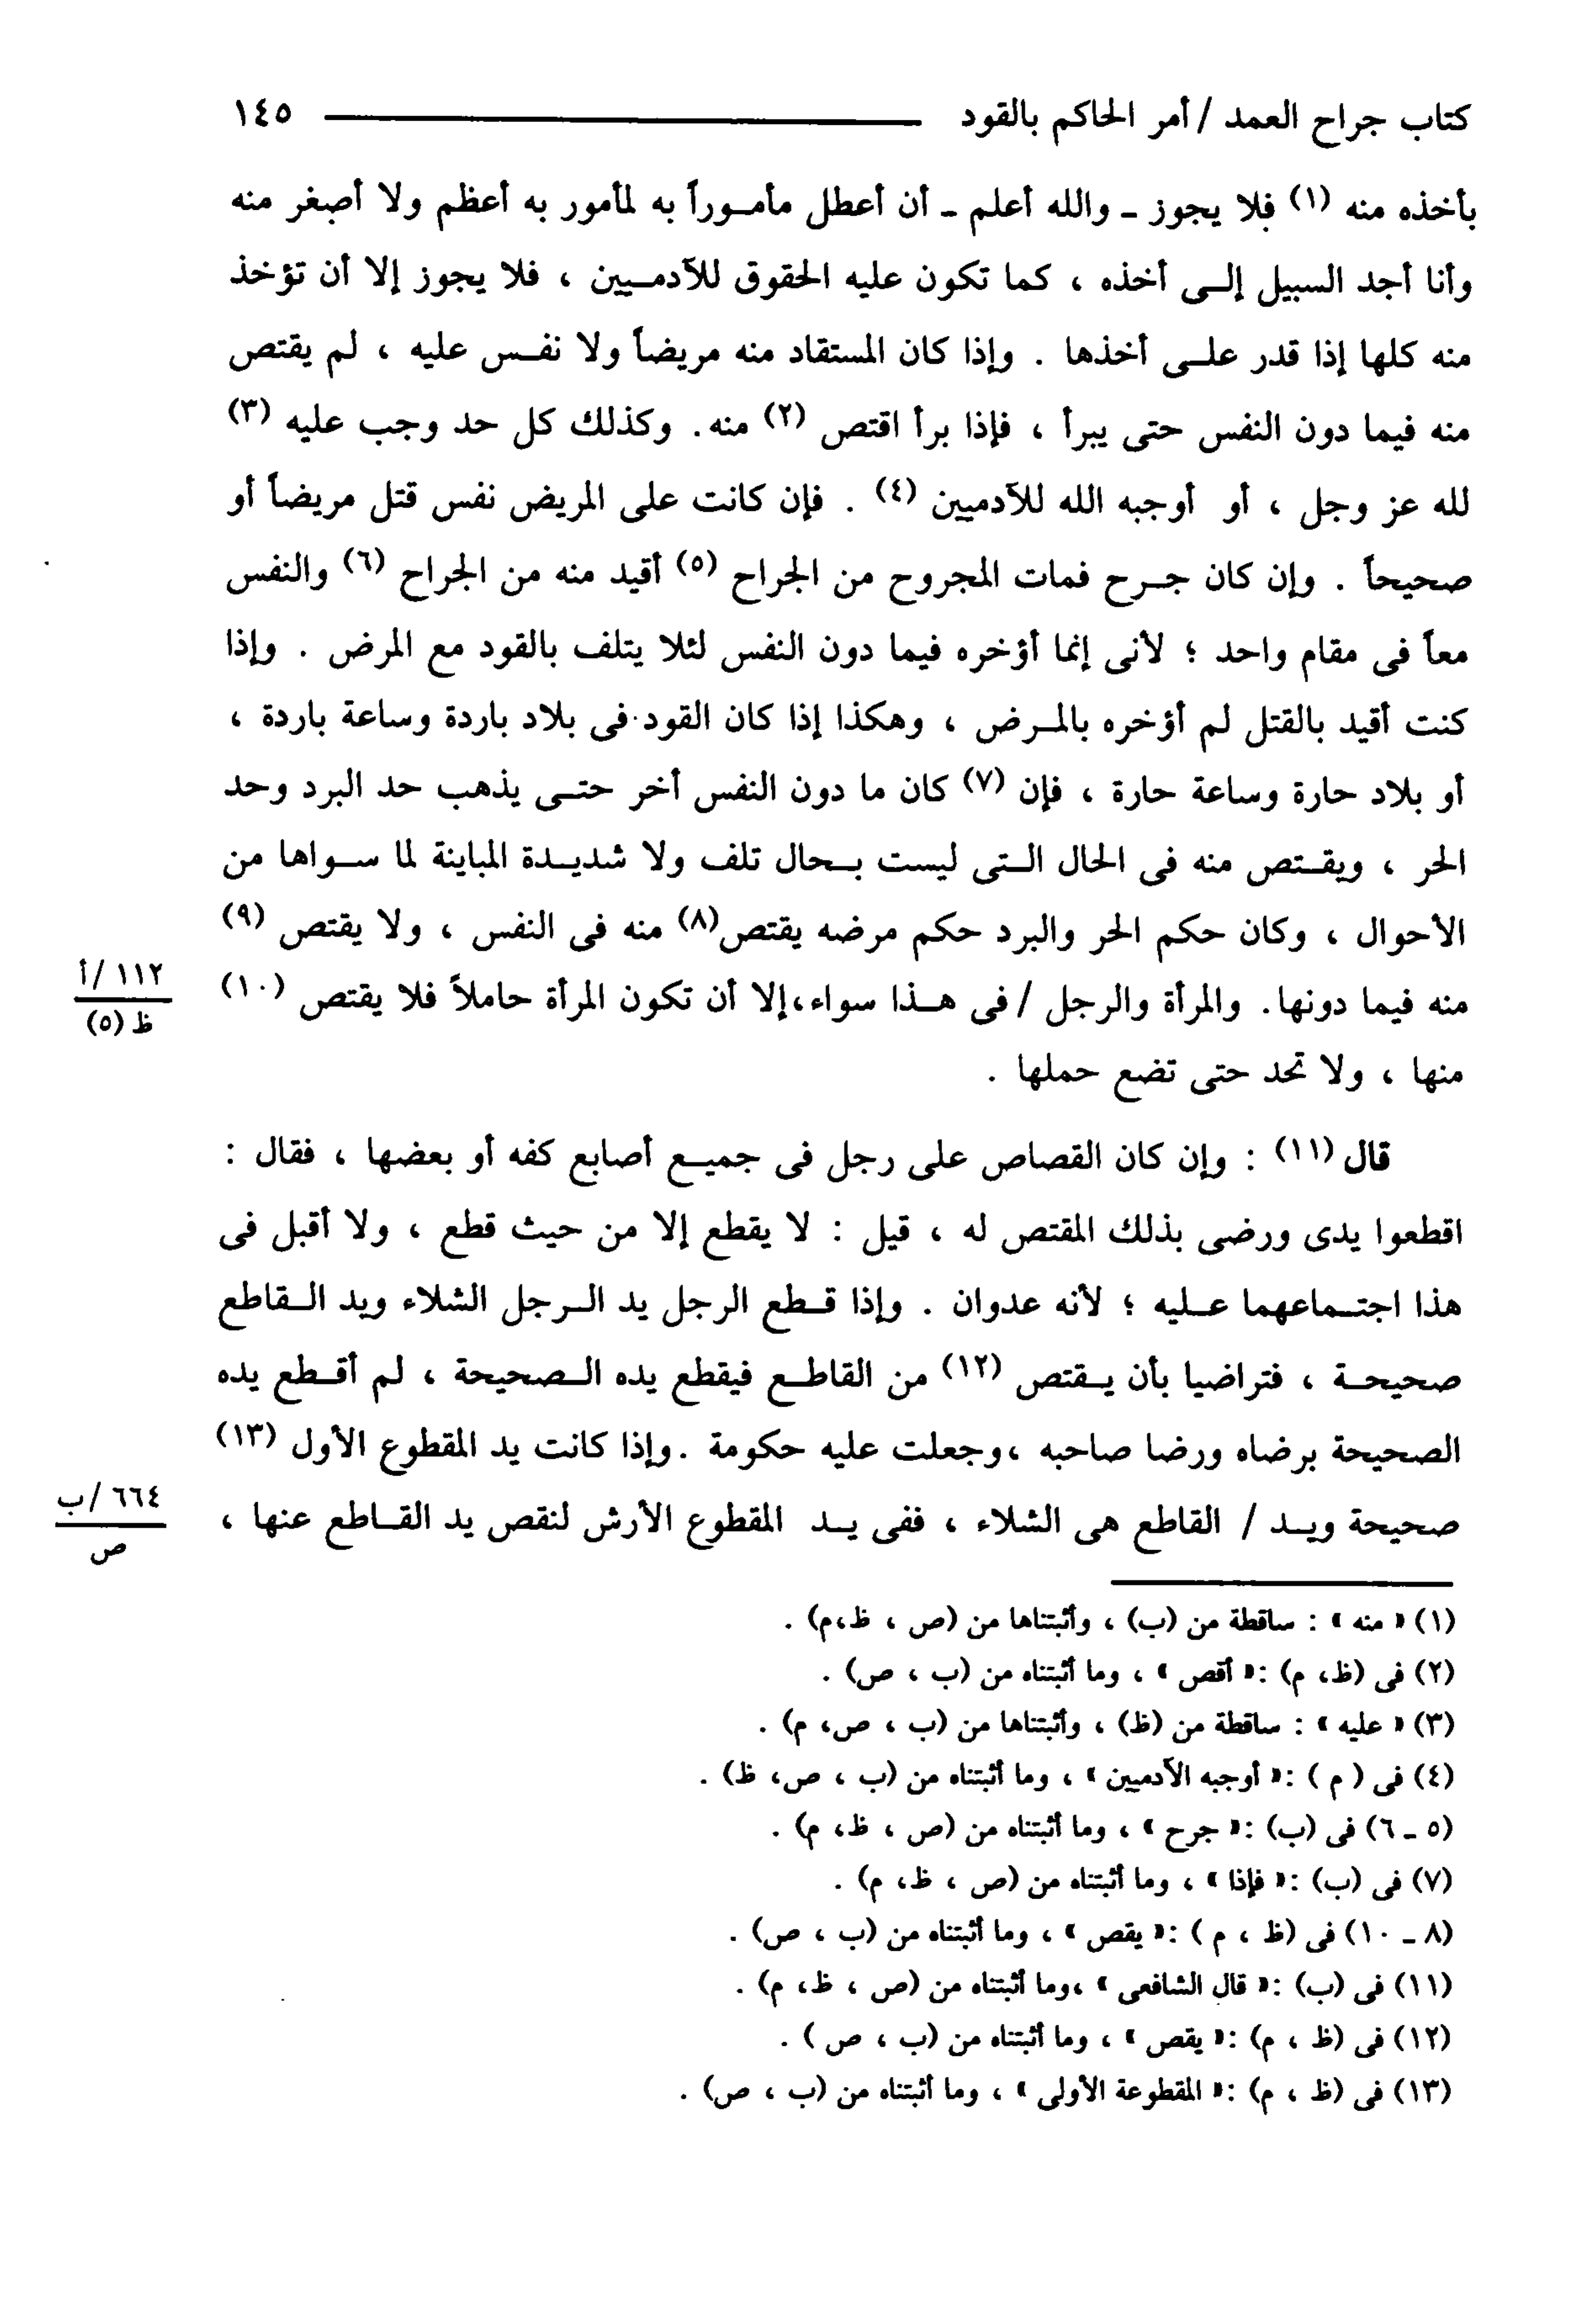 كتاب جراح العمد / أمر الحاكم بالقود ١٤٥
بأخذه منه (١) فلا يجوز ـ والله أعلم ـ أن أعطل مأموراً به لمأمور به أعظم ولا أصغر منه
وأنا أجد السبيل إلى أخذه ، كما تكون عليه الحقوق للآدميين ، فلا يجوز إلا أن تؤخذ
منه كلها إذا قدر على أخذها . وإذا كان المستقاد منه مريضاً ولا نفس عليه ، لم يقتص
منه فيما دون النفس حتى يبرأ ، فإذا برأ اقتص (٢) منه. وكذلك كل حد وجب عليه (٣)
لله عز وجل ، أو أوجبه الله للآدميين (٤) . فإن كانت على المريض نفس قتل مريضاً أو
صحيحاً . وإن كان جرح فمات المجروح من الجراح (٥) أقيد منه من الجراح (٦) والنفس
معاً فى مقام واحد ؛ لأنى إنما أؤخره فيما دون النفس لئلا يتلف بالقود مع المرض . وإذا
كنت أقيد بالقتل لم أؤخره بالمرض ، وهكذا إذا كان القود فى بلاد باردة وساعة باردة ،
أو بلاد حارة وساعة حارة ، فإن (٧) كان ما دون النفس أخر حتى يذهب حد البرد وحد
الحر ، ويقتص منه فى الحال التى ليست بحال تلف ولا شديدة المباينة لما سواها من
الأحوال ، وكان حكم الحر والبرد حكم مرضه يقتص(٨) منه فى النفس ، ولا يقتص (٩)
منه فيما دونها. والمرأة والرجل / فى هذا سواء،إلا أن تكون المرأة حاملاً فلا يقتص (١٠)
١١٢ /أ
ظ (٥)
منها ، ولا تحد حتى تضع حملها .
قال (١١) : وإن كان القصاص على رجل فى جميع أصابع كفه أو بعضها ، فقال :
اقطعوا يدى ورضى بذلك المقتص له ، قيل : لا يقطع إلا من حيث قطع ، ولا أقبل فى
هذا اجتماعهما عليه ؛ لأنه عدوان . وإذا قطع الرجل يد الرجل الشلاء ويد القاطع
صحيحة ، فتراضيا بأن يقتص (١٢) من القاطع فيقطع يده الصحيحة ، لم أقطع يده
الصحيحة برضاه ورضا صاحبه ،وجعلت عليه حكومة .وإذا كانت يد المقطوع الأول (١٣)
صحيحة ويد / القاطع هى الشلاء ، ففى يد المقطوع الأرش لنقص يد القاطع عنها ،
٦٦٤ /ب
ص
(١) « منه » : ساقطة من (ب) ، وأثبتناها من (ص ، ظ،م) .
(٢) فى (ظ، م) :« أقص » ، وما أثبتناه من (ب ، ص) .
(٣) « عليه » : ساقطة من (ظ) ، وأثبتناها من (ب ، ص، م) .
(٤) فى ( م ) :« أوجبه الآدميين » ، وما أثبتناه من (ب ، ص، ظ) .
(٥ ـ ٦) فى (ب) :« جرح » ، وما أثبتناه من (ص ، ظ، م) .
(٧) فى (ب) :« فإذا » ، وما أثبتناه من (ص ، ظ، م) .
(٨ ـ ١٠) فى (ظ ، م ) :« يقص » ، وما أثبتناه من (ب ، ص) .
(١١) فى (ب) :« قال الشافعى » ،وما أثبتناه من (ص ، ظ، م) .
(١٢) فى (ظ ، م) :« يقص » ، وما أثبتناه من (ب ، ص ) .
(١٣) فى (ظ ، م) :« المقطوعة الأولى » ، وما أثبتناه من (ب ، ص) .